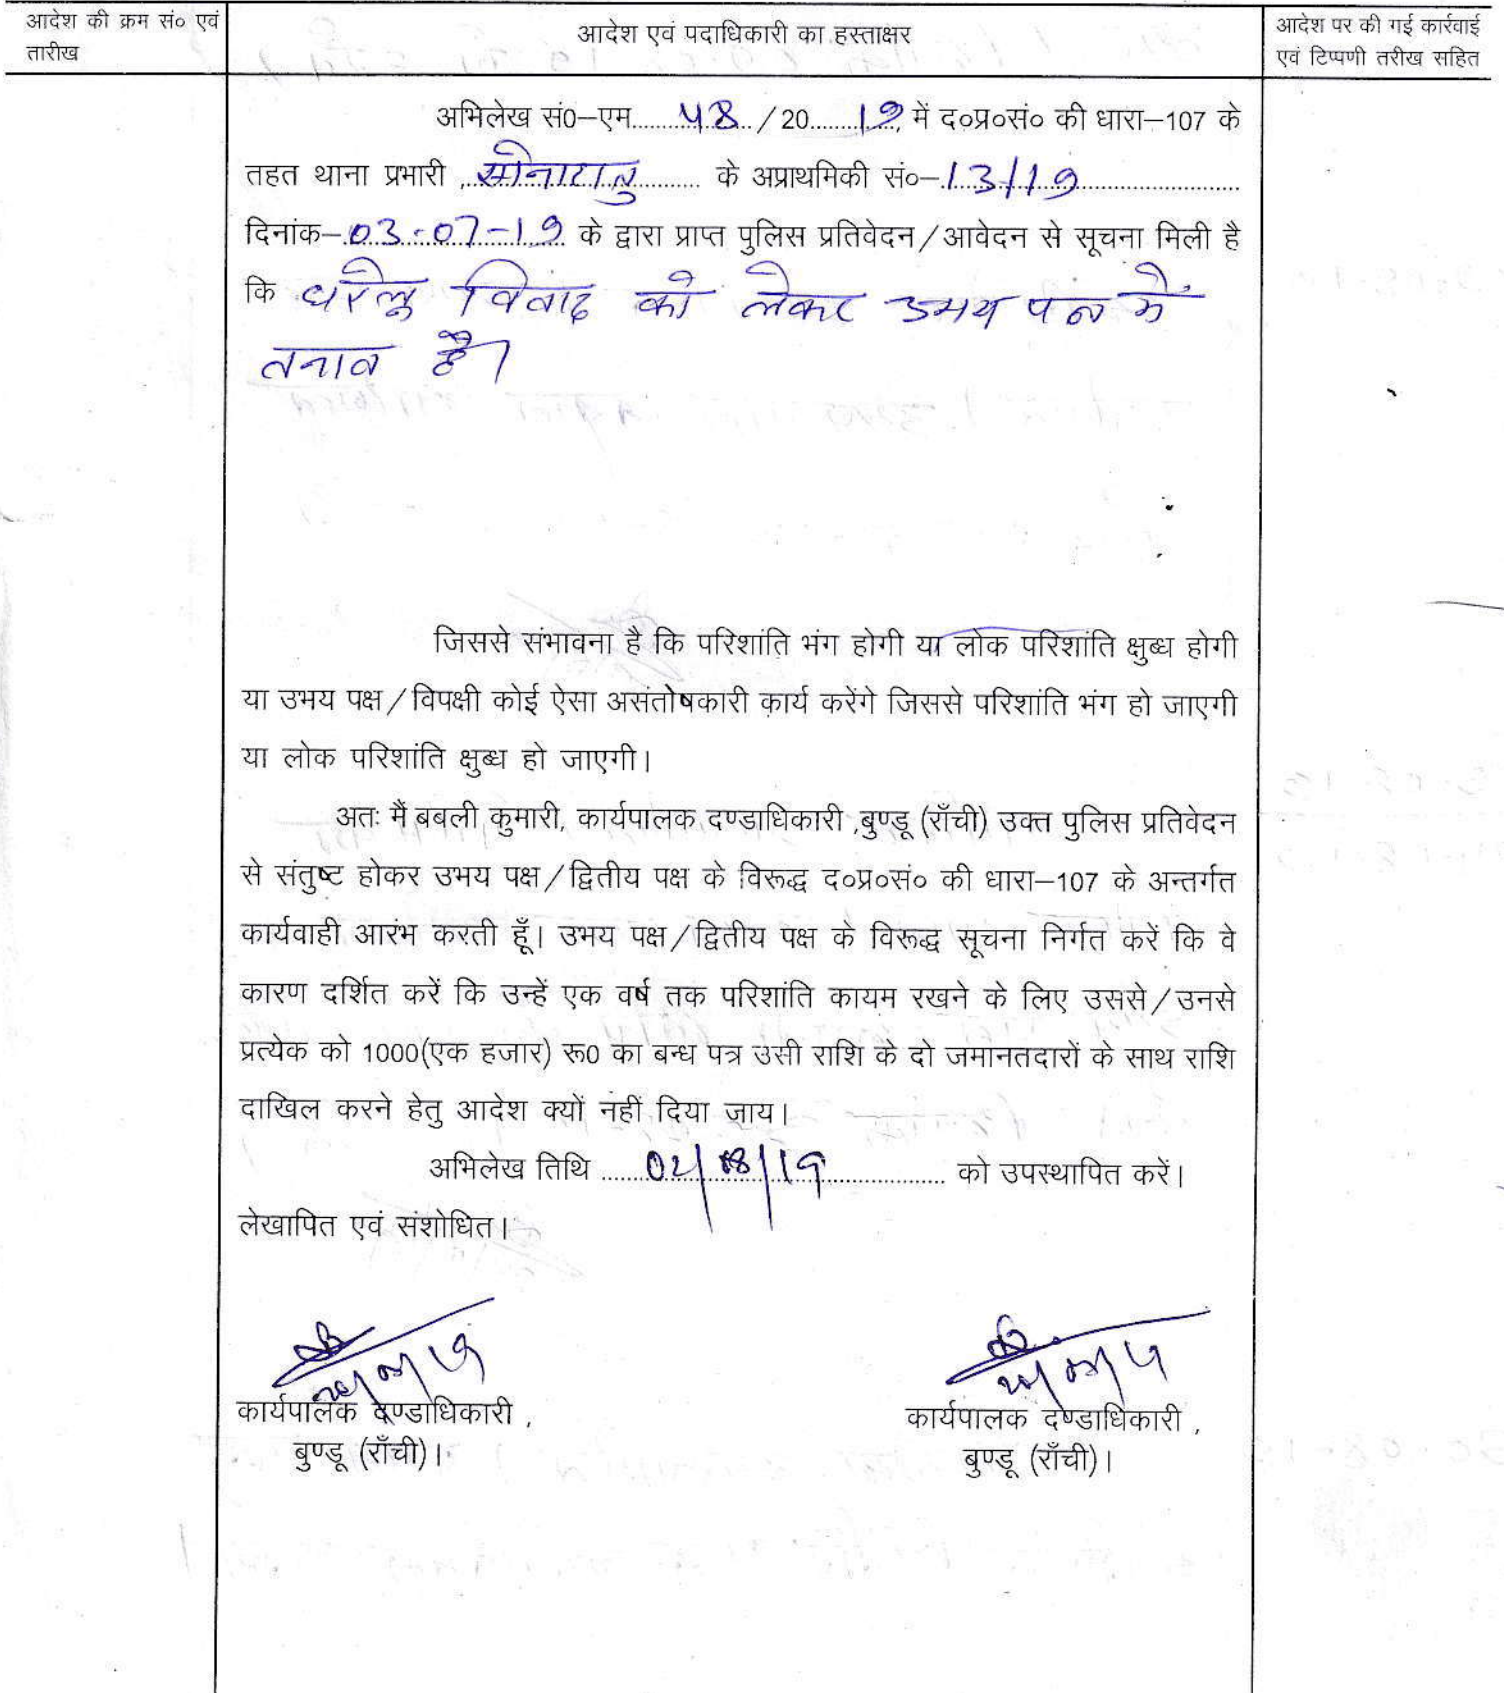 आदेश की क्रम सं० एवं
तारीख
आदेश एवं पदाधिकारी का हस्ताक्षर
आदेश पर की गई कार्रवाई
एवं टिप्पणी तरीख सहित
अभिलेख सं0–एम........48../20........19, में द०प्र०सं० की धारा–107 के
तहत थाना प्रभारी ,..सोनाहातु......... के अप्राथमिकी सं०–.13/19........................
दिनांक–.03-07-19 के द्वारा प्राप्त पुलिस प्रतिवेदन/आवेदन से सूचना मिली है
कि घरेलू विवाद को लेकर उभय पक्ष में
तनाव है।
जिससे संभावना है कि परिशांति भंग होगी या लोक परिशांति क्षुब्ध होगी
या उभय पक्ष/विपक्षी कोई ऐसा असंतोषकारी कार्य करेंगे जिससे परिशांति भंग हो जाएगी
या लोक परिशांति क्षुब्ध हो जाएगी।
अतः मैं बबली कुमारी, कार्यपालक दण्डाधिकारी ,बुण्डू (राँची) उक्त पुलिस प्रतिवेदन
से संतुष्ट होकर उभय पक्ष/द्वितीय पक्ष के विरूद्ध द०प्र०सं० की धारा–107 के अन्तर्गत
कार्यवाही आरंभ करती हूँ। उभय पक्ष/द्वितीय पक्ष के विरूद्ध सूचना निर्गत करें कि वे
कारण दर्शित करें कि उन्हें एक वर्ष तक परिशांति कायम रखने के लिए उससे/उनसे
प्रत्येक को 1000(एक हजार) रू0 का बन्ध पत्र उसी राशि के दो जमानतदारों के साथ राशि
दाखिल करने हेतु आदेश क्यों नहीं दिया जाय।
अभिलेख तिथि ......02/08/19................ को उपस्थापित करें।
लेखापित एवं संशोधित।
कार्यपालक दण्डाधिकारी ,
बुण्डू (राँची)।
कार्यपालक दण्डाधिकारी ,
बुण्डू (राँची)।